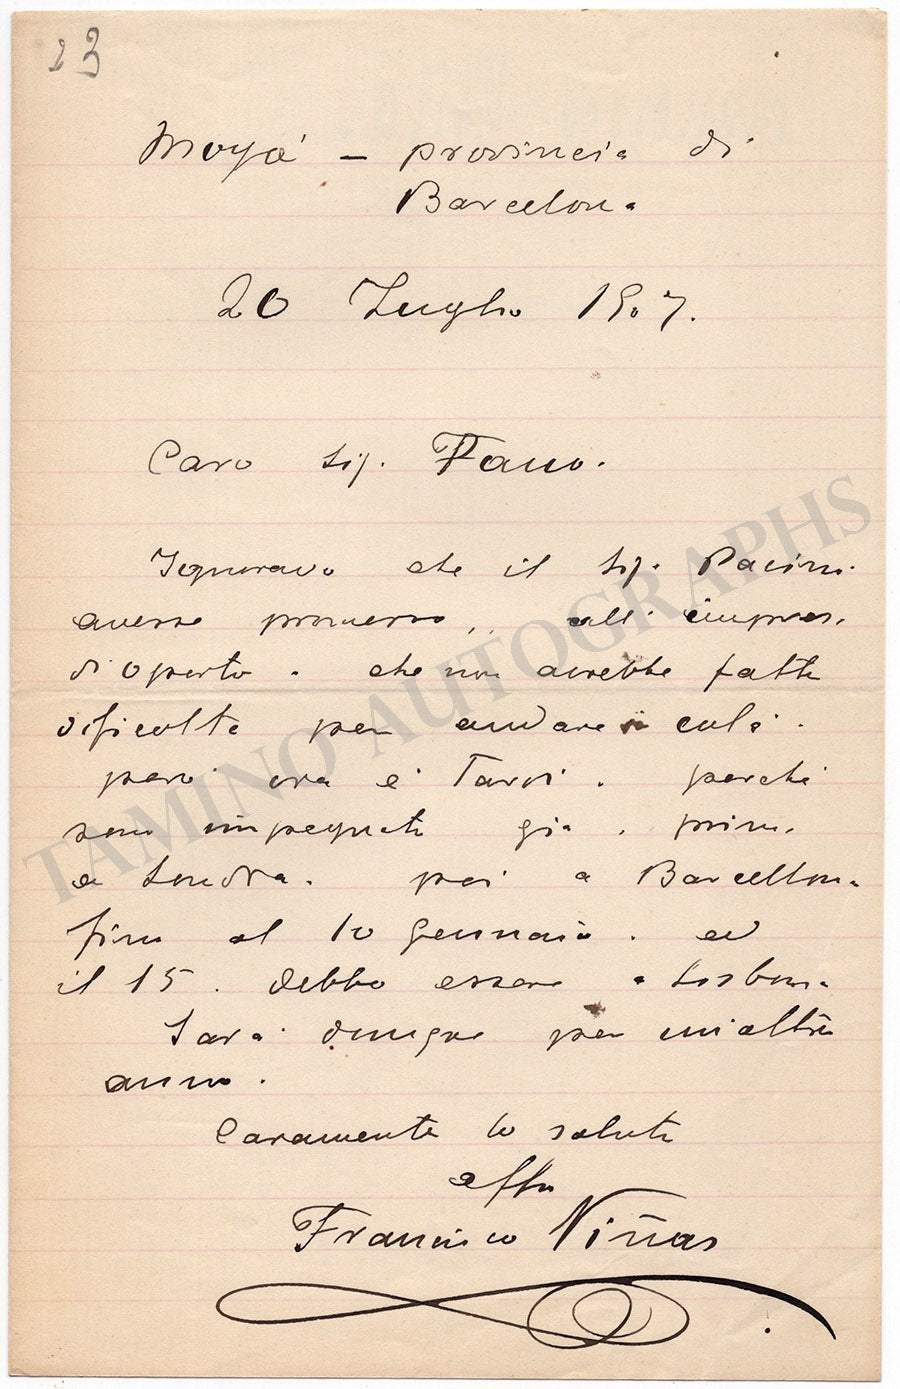 23
Moyá – provincia di
Barcelona
20 Luglio 1907.
Caro Sig. Fano.
Ignoravo che il Sig. Pacini
avesse promesso, all'impresa
di Oporto. che non avrebbe fatto
dificoltà per andare colà.
però ora è Tardi. perché
sono impegnato già. prima
a Londra. poi a Barcellona
fino al 10 gennaio. ed
il 15. debbo essere a Lisbona
Sarà dunque per un'altro
anno.
Caramente lo saluto
affmo
Francisco Viñas
TAMINO AUTOGRAPHS